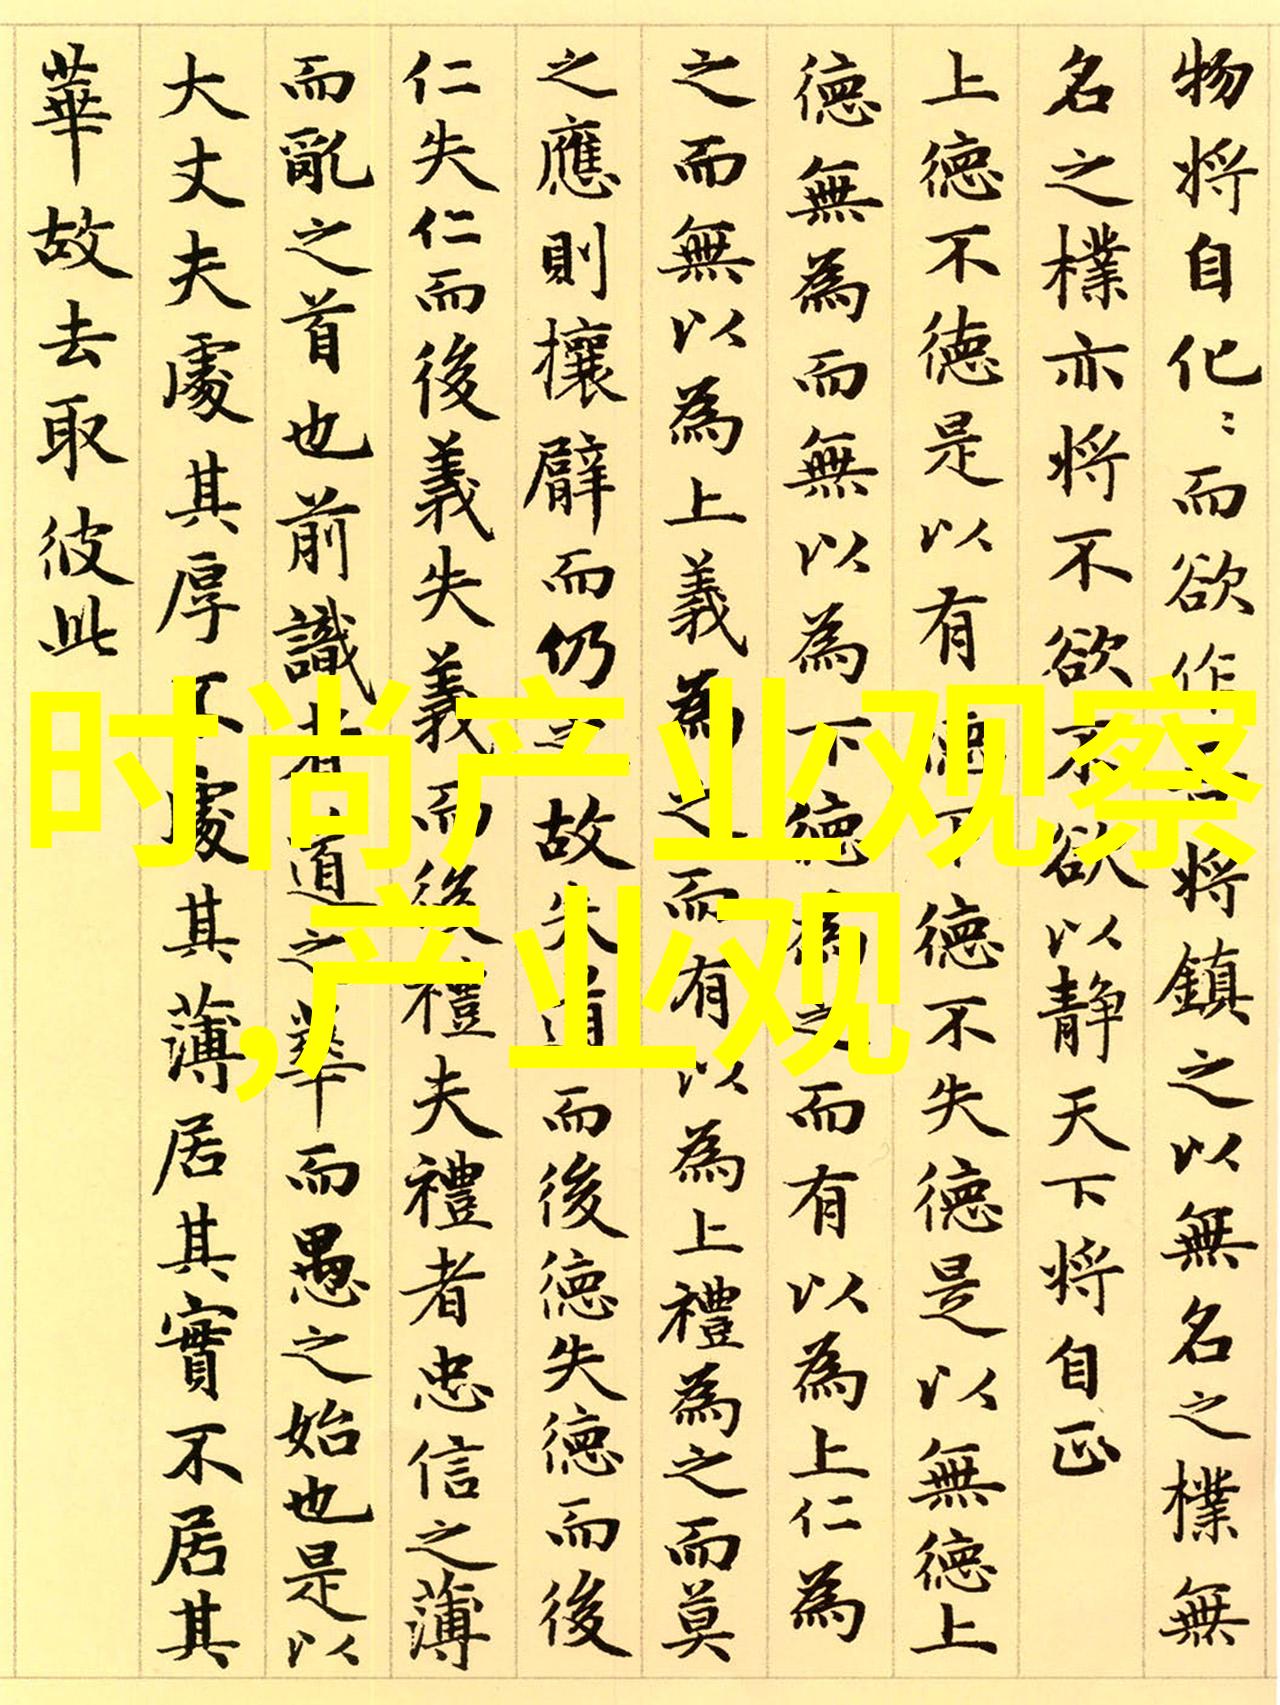 物将自化〻而欲作将鎮之以無名之樸無
名之樸亦将不欲不欲以静天下将自正
上徳不徳是以有徳下徳不失徳是以無徳上
徳無為而無以為下徳為之而有以為上仁為
之而無以為上義為之而有以為上禮為之而莫
之應則攘臂而仍之故失道而後徳失徳而後
仁失仁而後義失義而後禮夫禮者忠信之薄
而亂之首也前識者道之華而愚之始也是以
大丈夫處其厚不處其薄居其實不居其
華故去取彼此
时尚产业观察
,产业观